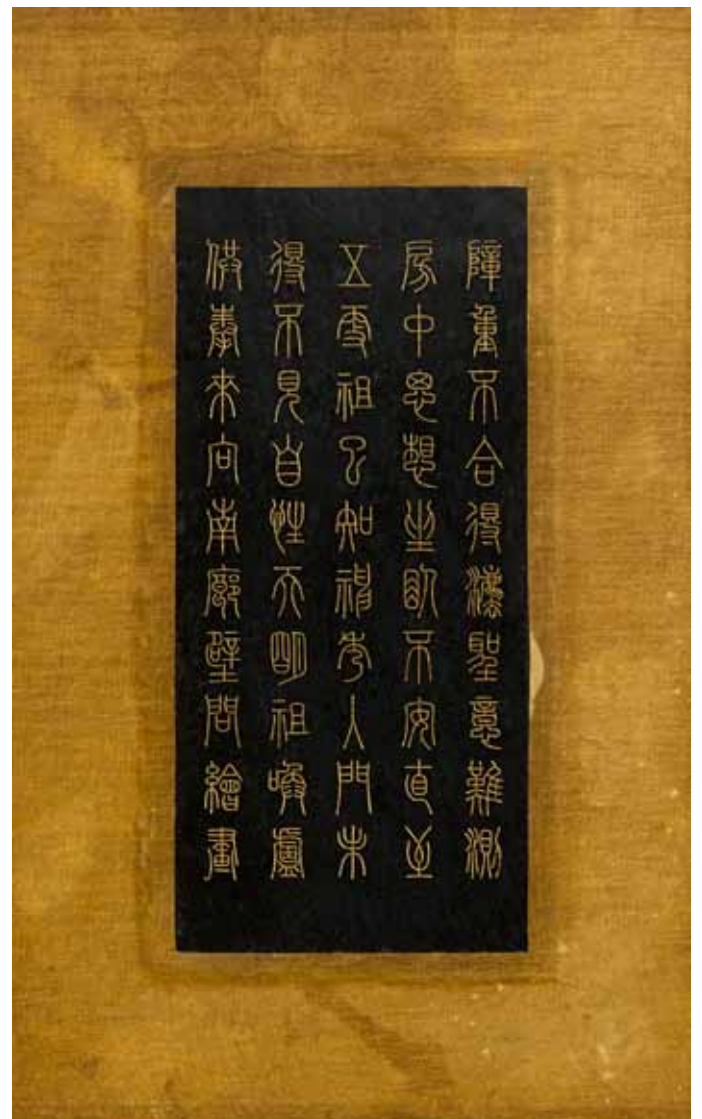 障重不合得灋聖意難測
房中思想坐臥不安直至
五更祖已知神秀入門未
得不見自性天明祖喚盧
供奉來向南廊壁間繪畫